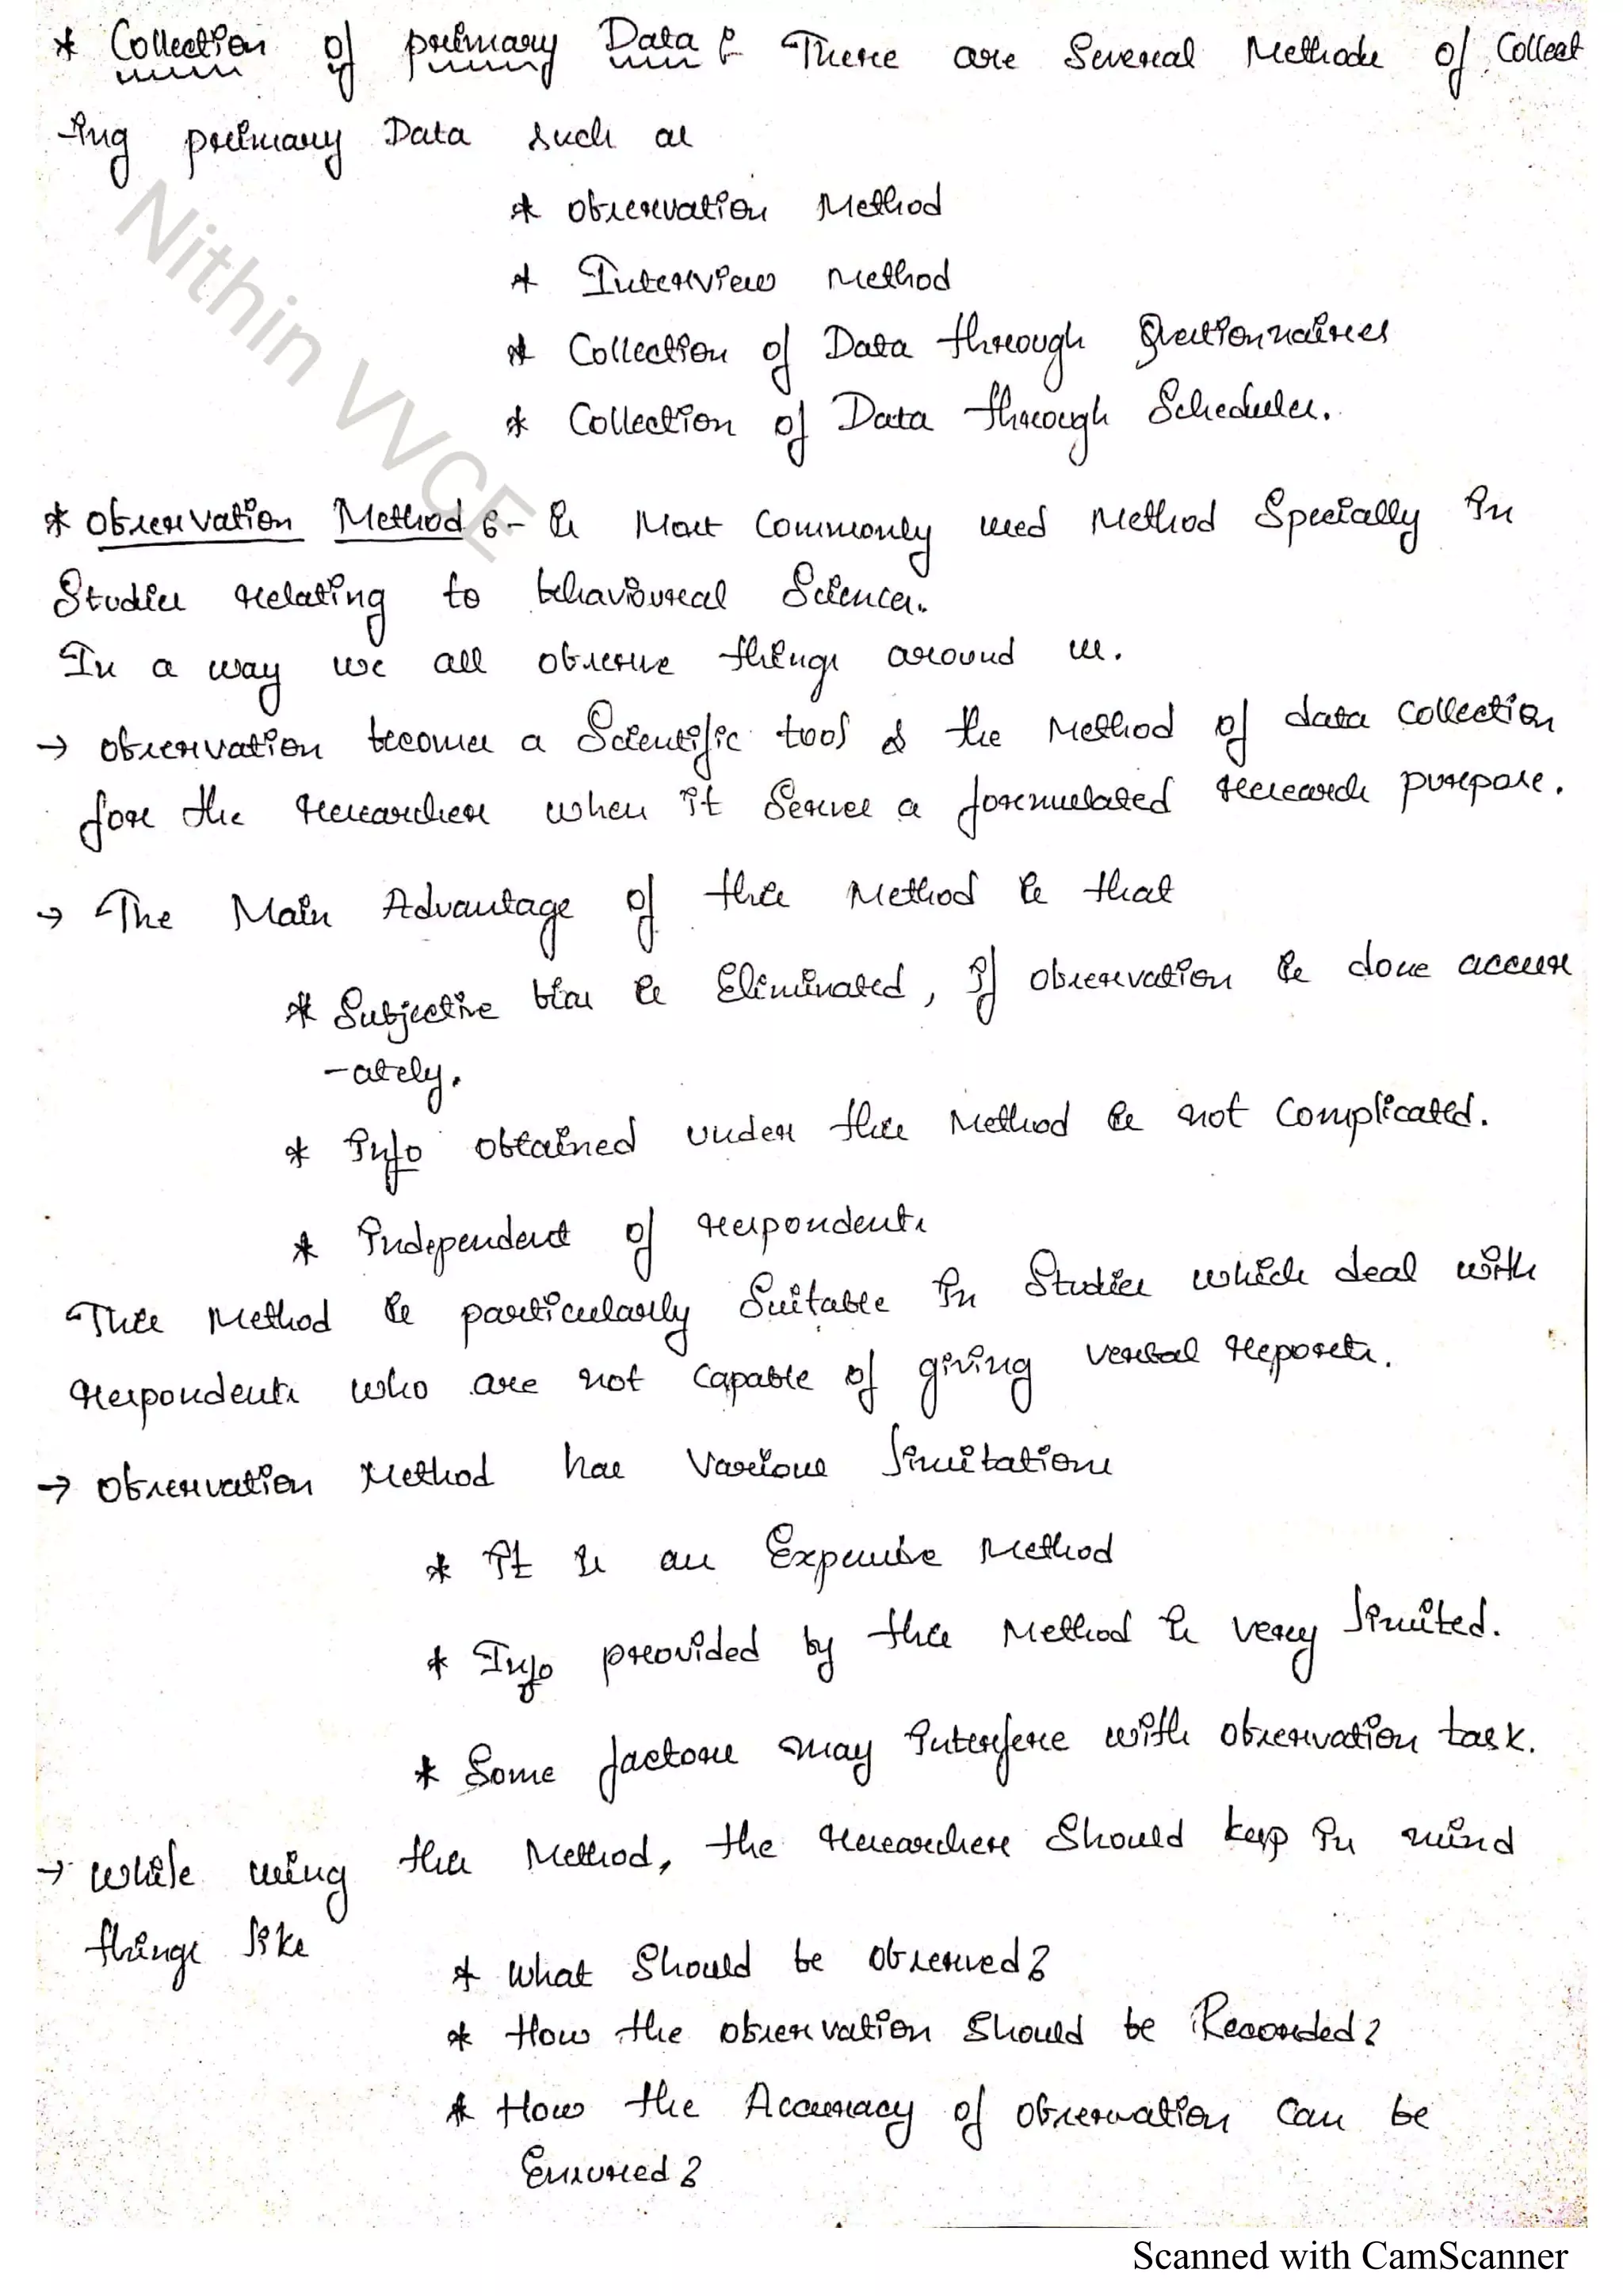 * Collection of primary Data :- There are Several Methods of Collect
ing primary Data such as
* observation Method
* Interview Method
* Collection of Data through Questionnaires
* Collection of Data through Schedules.
* observation Method :- Is Most Commonly used Method Specially in
Studies relating to behavioural Sciences.
In a way we all observe things around us.
→ observation becomes a Scientific tool & the Method of data Collection
for the researcher when it Serves a formulated research purpose.
→ The Main Advantage of this Method is that
* Subjective bias is Eliminated, if observation is done accur
-ately.
* Info obtained under this Method is not Complicated.
* Independent of respondents
This Method is particularly Suitable in Studies which deal with
respondents who are not Capable of giving verbal reports.
→ observation Method has Various limitations
* It is an Expensive Method
* Info provided by this Method is very limited.
* Some factors may interfere with observation task.
→ While using this Method, the researcher Should keep in mind
things like
* What Should be observed?
* How the observation Should be Recorded?
* How the Accuracy of observation Can be
Ensured?
Nithin VVCE
Scanned with CamScanner